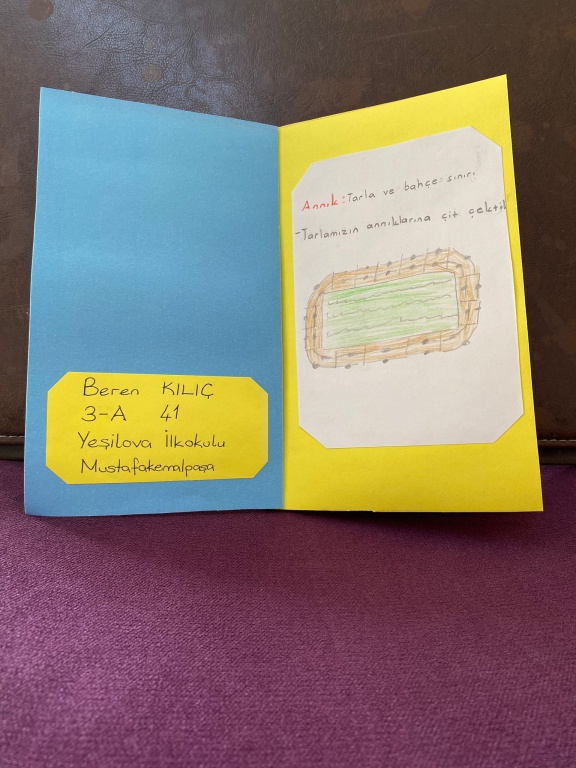 Beren KILIÇ
3-A 41
Yeşilova İlkokulu
Mustafakemalpaşa
Annık: Tarla ve bahçe sınırı
-Tarlamızın annıklarına çit çektik